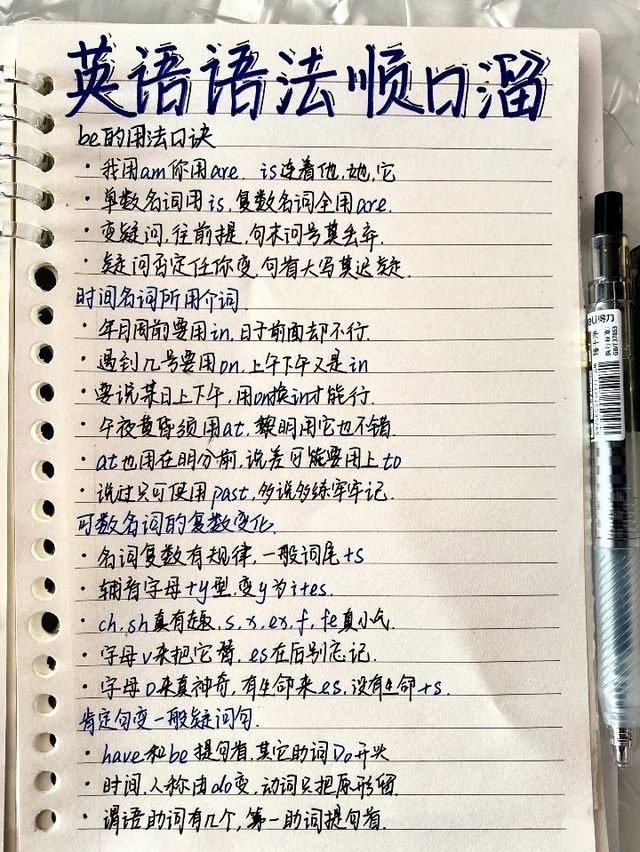 英语语法顺口溜
be的用法口诀
· 我用am你用are. is连着他,她,它
· 单数名词用is,复数名词全用are.
· 变疑问,往前提,句末问号莫丢弃.
· 疑问否定任你变,句首大写莫迟疑.
时间名词所用介词.
· 年月周前要用in,日子前面却不行.
· 遇到几号要用on,上午下午又是in
· 要说某日上下午,用on换in才能行.
· 午夜黄昏须用at,黎明用它也不错.
· at也用在明分前,说差可能要用上to
· 说过只可使用past,多说多练牢牢记.
可数名词的复数变化.
· 名词复数有规律,一般词尾+s
· 辅音字母+y型,变y为i+es.
· ch,sh真有趣,s,x,es,f,fe真小气.
· 字母v来把它替,es在后别忘记.
· 字母o来真神奇,有生命来es,没有生命+s.
肯定句变一般疑问句.
· have和be提句首,其它助词Do开头
· 时间,人称由do变,动词只把原形留.
· 谓语助词有几个,第一助词提句首.
deli得力